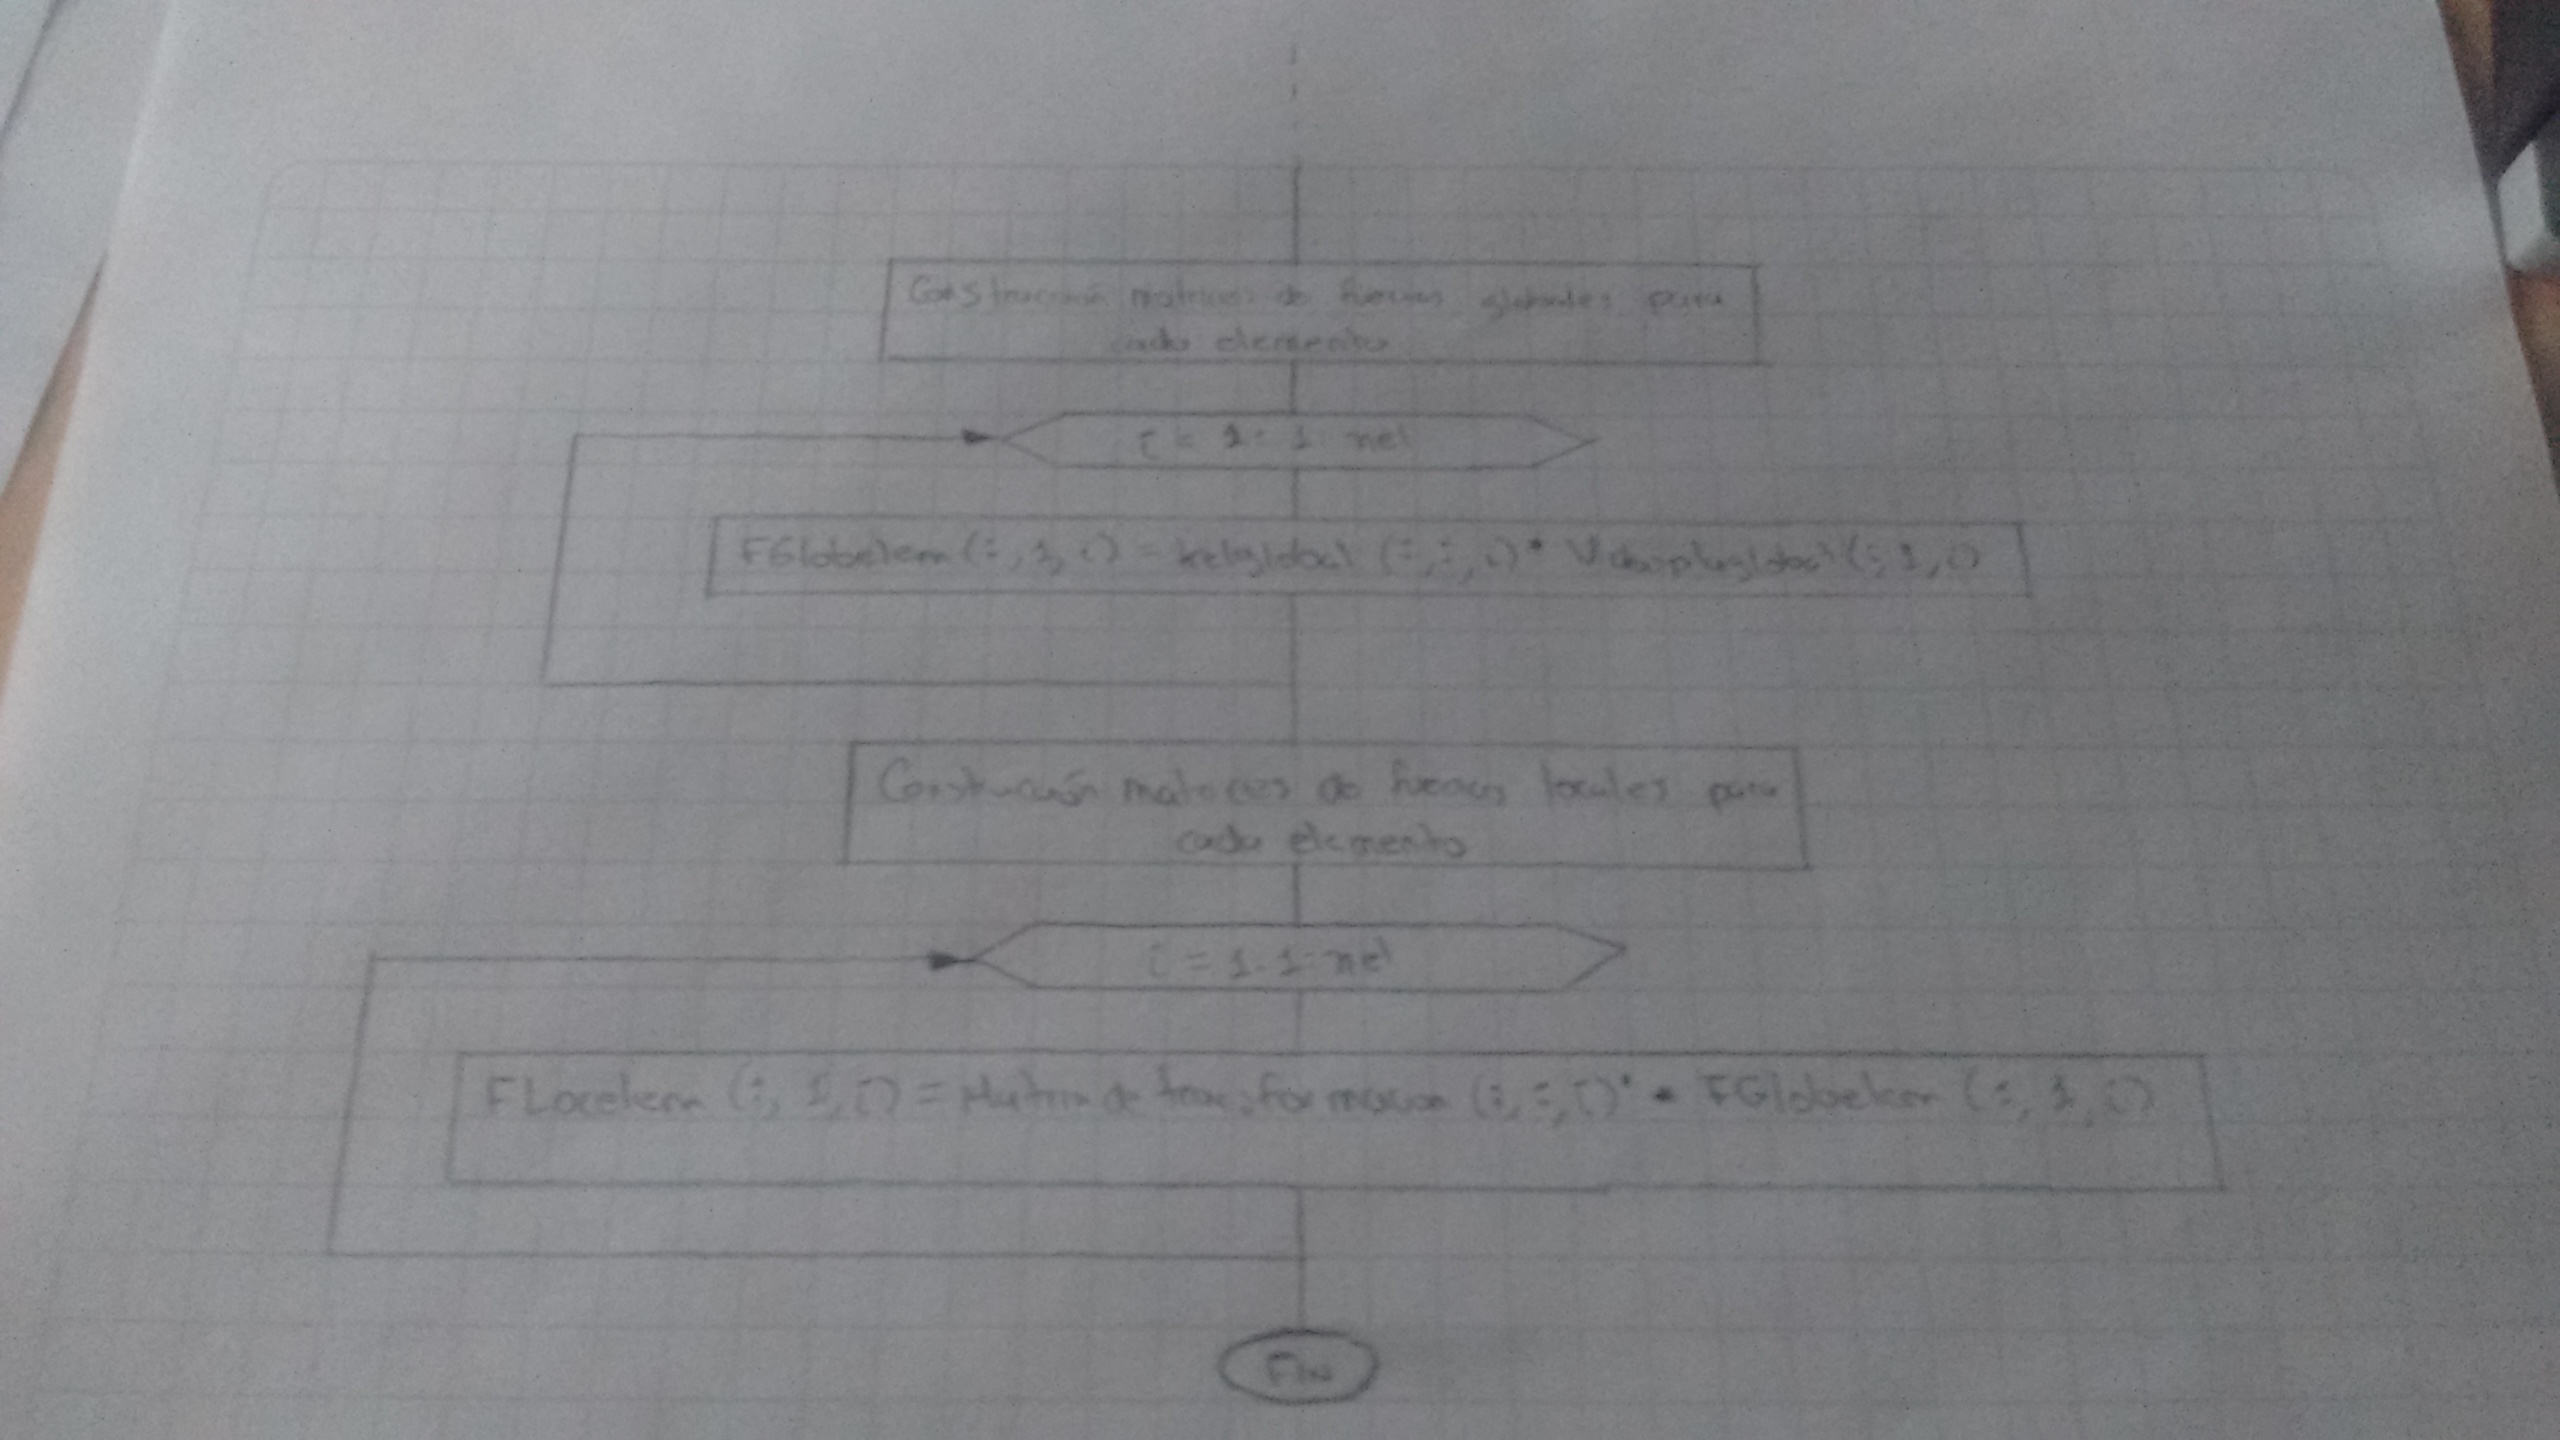 Construcción matrices de fuerzas globales para
cada elemento
i = 1: 1: nel
FGlobelem (:, 1, i) = kelglobal (:,:,i) * (:,1,i)
Construcción matrices de fuerzas locales para
cada elemento
i = 1:1:nel
FLocelem (:, 1,i) = Matriz de transformacion (:,:,i)' * FGlobelem (:, 1, i)
FIN